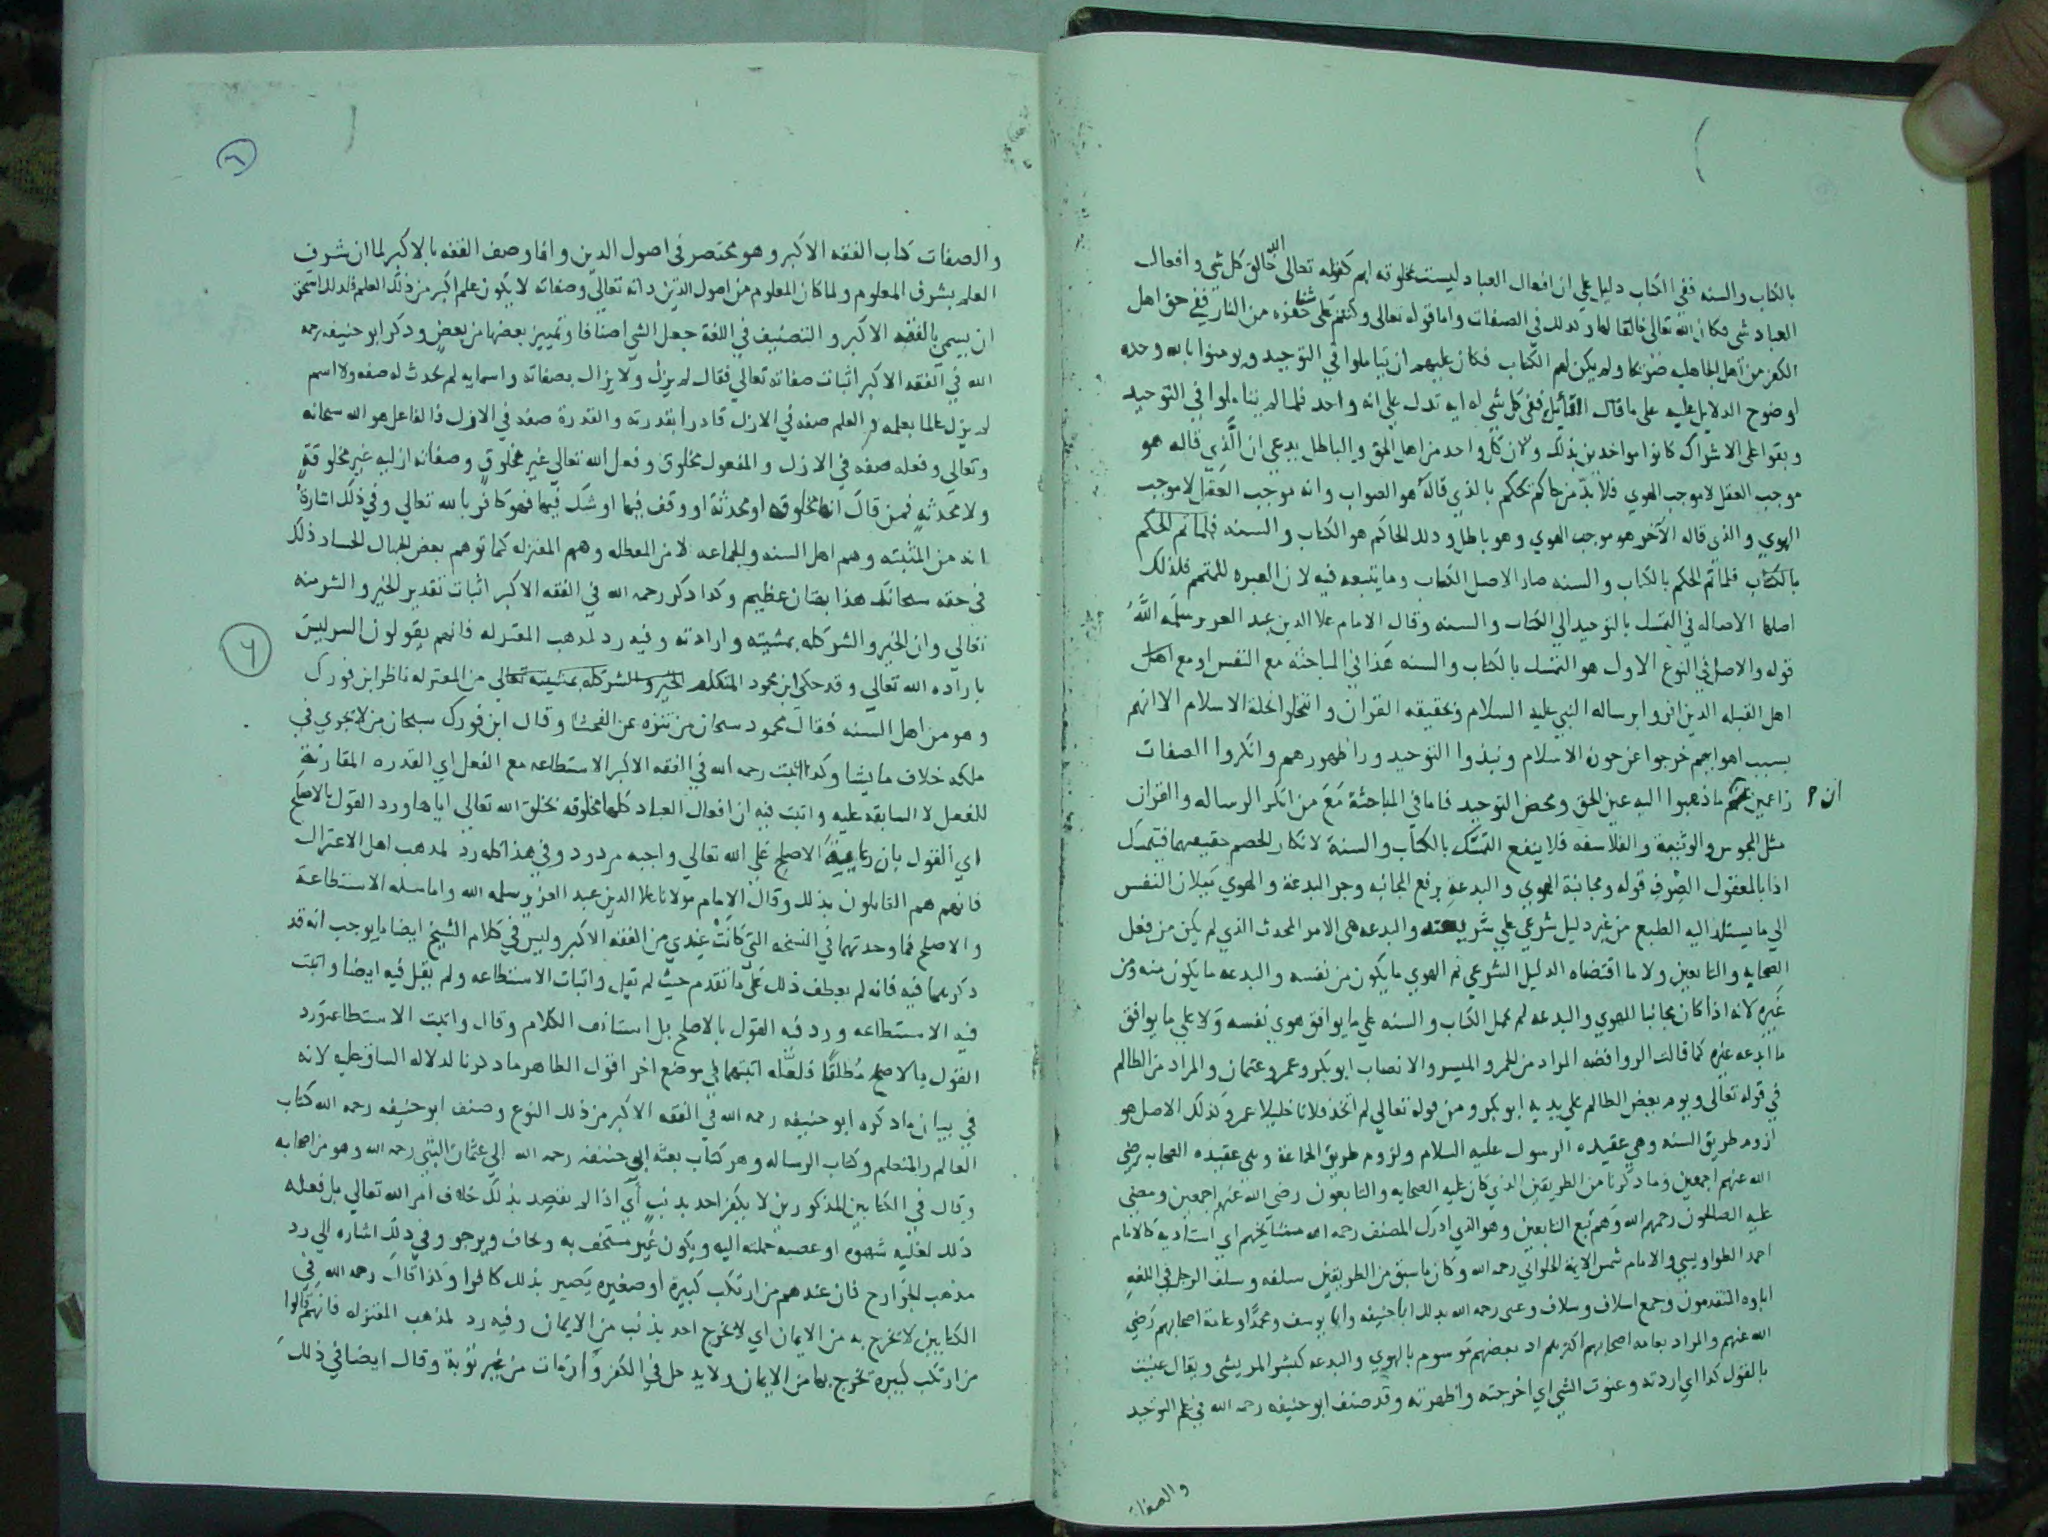 بالكتاب والسنه ففي الكتاب دليل على ان افعال العباد ليست مخلوقة لهم كقوله تعالى الله خالق كل شي وافعال
العباد شي فكان الله تعالى خالقا لها وكذلك في الصفات واما قوله تعالى وكنتم على شفا حفره من النار ففي حق اهل
الكفر من اهل الجاهليه ولم يكن لهم الكتاب فكان عليهم ان يتاملوا في التوحيد ويومنوا بالله وحده
لوضوح الدلايل عليه على ما قال القائل ففي كل شي له ايه تدل على انه واحد فلما لم يتاملوا في التوحيد
وبقوا على الاشراك كانوا مواخدين بذلك ولان كل واحد من اهل الحق والباطل يدعي ان الذي قاله هو
موجب العقل لا موجب الهوي فلا بد من حاكم يحكم بالذي قاله هو الصواب وانه موجب العقل لا موجب
الهوي والذي قاله الآخر هو موجب الهوي وهو باطل وذلك الحاكم هو الكتاب والسنه فلما تم الحكم
بالكتاب فلما تم الحكم بالكتاب والسنه صار الاصل الكتاب وما يتبعه فيه لان العبره للمتمم فلذلك
اصلها الاصاله في التمسك بالتوحيد الي الكتاب والسنه وقال الامام علا الدين عبد العزيز سلمه الله
قوله والاصل في النوع الاول هو التمسك بالكتاب والسنه هذا في المباحثه مع النفس او مع اهل
اهل القبله الدين اقروا برساله النبي عليه السلام وبحقيقه القران وانتحلوا نحلة الاسلام الا انهم
بسبب اهوايهم خرجوا عن حوزة الاسلام ونبذوا التوحيد ورا ظهورهم وانكروا الصفات
زاعمين ان ما ذهبوا اليه عين الحق ومحض التوحيد فاما في المباحثة مع من انكر الرساله والقران
مثل المجوس والوثنية والفلاسفه فلا ينفع التمسك بالكتاب والسنة لانكار الخصم حقيتهما فيتمسك
اذا بالمعقول الصرف قوله ومجانبة الهوي والبدعة برفع المجانبه وجر البدعة والهوي ميلان النفس
الي ما يستلذ اليه الطبع من غير دليل شرعي علي شرعيته والبدعه هي الامر المحدث الذي لم يكن من فعل
الصحابه والتابعين ولا ما اقتضاه الدليل الشرعي ثم الهوي ما يكون من نفسه والبدعه ما يكون منه ومن
غيره لانه اذا كان مجانبا للهوي والبدعه لم يحمل الكتاب والسنه علي ما يوافق هوي نفسه ولا علي ما يوافق
ما ابدعه غيره كما قالت الروافضه المراد من الخمر والميسر والانصاب ابو بكر وعمر وعثمان والمراد من الظالم
في قوله تعالى ويوم يعض الظالم علي يديه ابو بكر ومن قوله تعالي لم اتخذ فلانا خليلا عمر وكذلك الاصل هو
لزوم طريق السنه وهي عقيده الرسول عليه السلام ولزوم طريق الجماعة وهي عقيده الصحابه رضي
الله عنهم اجمعين وما ذكرنا من الطريقين الذي كان عليه الصحابه والتابعون رضى الله عنهم اجمعين ومضي
عليه الصالحون رحمهم الله وهم تبع التابعين وهو الذي ادرك المصنف رحمه الله مشايخهم اي استاديه كالامام
احمد الطواويسي والامام شمس الايمة الحلواني رحمه الله وكان ما سبق من الطريقين سلفه وسلف الرجل في اللغه
اباوه المتقدمون وجمع اسلاف وسلاف وعنى رحمه الله بدلك ابا حنيفه وابا يوسف ومحمدا وعامة اصحابهم رضي
الله عنهم والمراد بعامه اصحابهم اكثرهم اذ بعضهم موسوم بالهوي والبدعه كبشر المريسي ويقال عنيت
بالقول كذا اي اردته وعنوت الشي اي اخرجته واظهرته وقد صنف ابو حنيفه رحمه الله في علم التوحيد
والصفات
٦
والصفات كتاب الفقه الاكبر وهو مختصر في اصول الدين وانما وصف الفقه بالاكبر لما ان شرف
العلم بشرف المعلوم ولما كان المعلوم من اصول الدين ذاته تعالي وصفاته لا يكون علم اكبر من ذلك العلم فلذلك استحق
ان يسمي بالفقه الاكبر والتصنيف في اللغة جعل الشي اصنافا وتمييز بعضها من بعض وذكر ابو حنيفه رحمه
الله في الفقه الاكبر اثبات صفاته تعالي فقال لم يزل ولا يزال بصفاته واسمايه لم يحدث له صفه ولا اسم
لم يزل عالما بعلمه والعلم صفه في الازل قادرا بقدرته والقدرة صفه في الازل والفاعل هو الله سبحانه
وتعالي وفعله صفه في الازل والمفعول مخلوق وفعل الله تعالي غير مخلوق وصفاته ازليه غير مخلوقة
ولا محدثه فمن قال انها مخلوقه او محدثة او وقف فيها او شك فيها فهو كافر بالله تعالي وفي ذلك اشارة
انه من المثبته وهم اهل السنه والجماعه لا من المعطله وهم المعتزله كما توهم بعض الجهال الحساد ذلك
في حقه سبحانك هذا بهتان عظيم وكذا ذكر رحمه الله في الفقه الاكبر اثبات تقدير الخير والشر منه
تعالي وان الخير والشر كله بمشيته وارادته وفيه رد لمذهب المعتزله فانهم يقولون الشر ليس
باراده الله تعالي وقد حكي ابن محمود المتكلم الخير والشر كله بمشيته تعالي من المعتزله ناظر ابن فورك
وهو من اهل السنه فقال محمود سبحان من تنزه عن الفحشا وقال ابن فورك سبحان من لا يجري في
ملكه خلاف ما يشا وكذا اثبت رحمه الله في الفقه الاكبر الاستطاعه مع الفعل اي القدره المقارنة
للفعل لا السابقه عليه واثبت فيه ان افعال العباد كلها مخلوقه بخلق الله تعالي اياها ورد القول بالاصلح
اي القول بان رعاية الاصلح علي الله تعالي واجبه مردود وفي هذا كله رد لمذهب اهل الاعتزال
فانهم هم القايلون بذلك وقال الامام مولانا علا الدين عبد العزيز سلمه الله واما مسله الاستطاعة
والاصلح فما وجدتهما في النسخه التي كانت عندي من الفقه الاكبر وليس في كلام الشيخ ايضا ما يوجب انه قد
ذكرهما فيه فانه لم يعطف ذلك على ما تقدم حيث لم يقل واثبات الاستطاعه ولم يقل فيه ايضا واثبت
فيه الاستطاعه ورد فيه القول بالاصلح بل استانف الكلام وقال واثبت الاستطاعه ورد
القول بالاصلح مطلقا فلعله اثبتهما في موضع اخر اقول الظاهر ما ذكرنا لدلاله السياق عليه لانه
في بيان ما ذكره ابو حنيفه رحمه الله في الفقه الاكبر من ذلك النوع وصنف ابو حنيفه رحمه الله كتاب
العالم والمتعلم وكتاب الرساله وهو كتاب بعثه ابي حنيفه رحمه الله الي عثمان البتي رحمه الله وهو من اصحابه
وقال في الكتابين المذكورين لا يكفر احد بذنب اي اذا لم يقصد بذلك خلاف امر الله تعالي بل فعله
ذلك لغلبه شهوه او عصبه حملته اليه ويكون غير مستخف به وخاف ويرجو وفي ذلك اشاره الي رد
مذهب الخوارج فان عندهم من ارتكب كبيرة او صغيره يصير بذلك كافرا ولهذا قال رحمه الله في
الكتابين لا يخرج به من الايمان اي لا يخرج احد بذنب من الايمان وفيه رد لمذهب المعتزله فانهم قالوا
من ارتكب كبيرة يخرج بها من الايمان ولا يدخل في الكفر وان مات من غير توبة وقال ايضا في ذلك